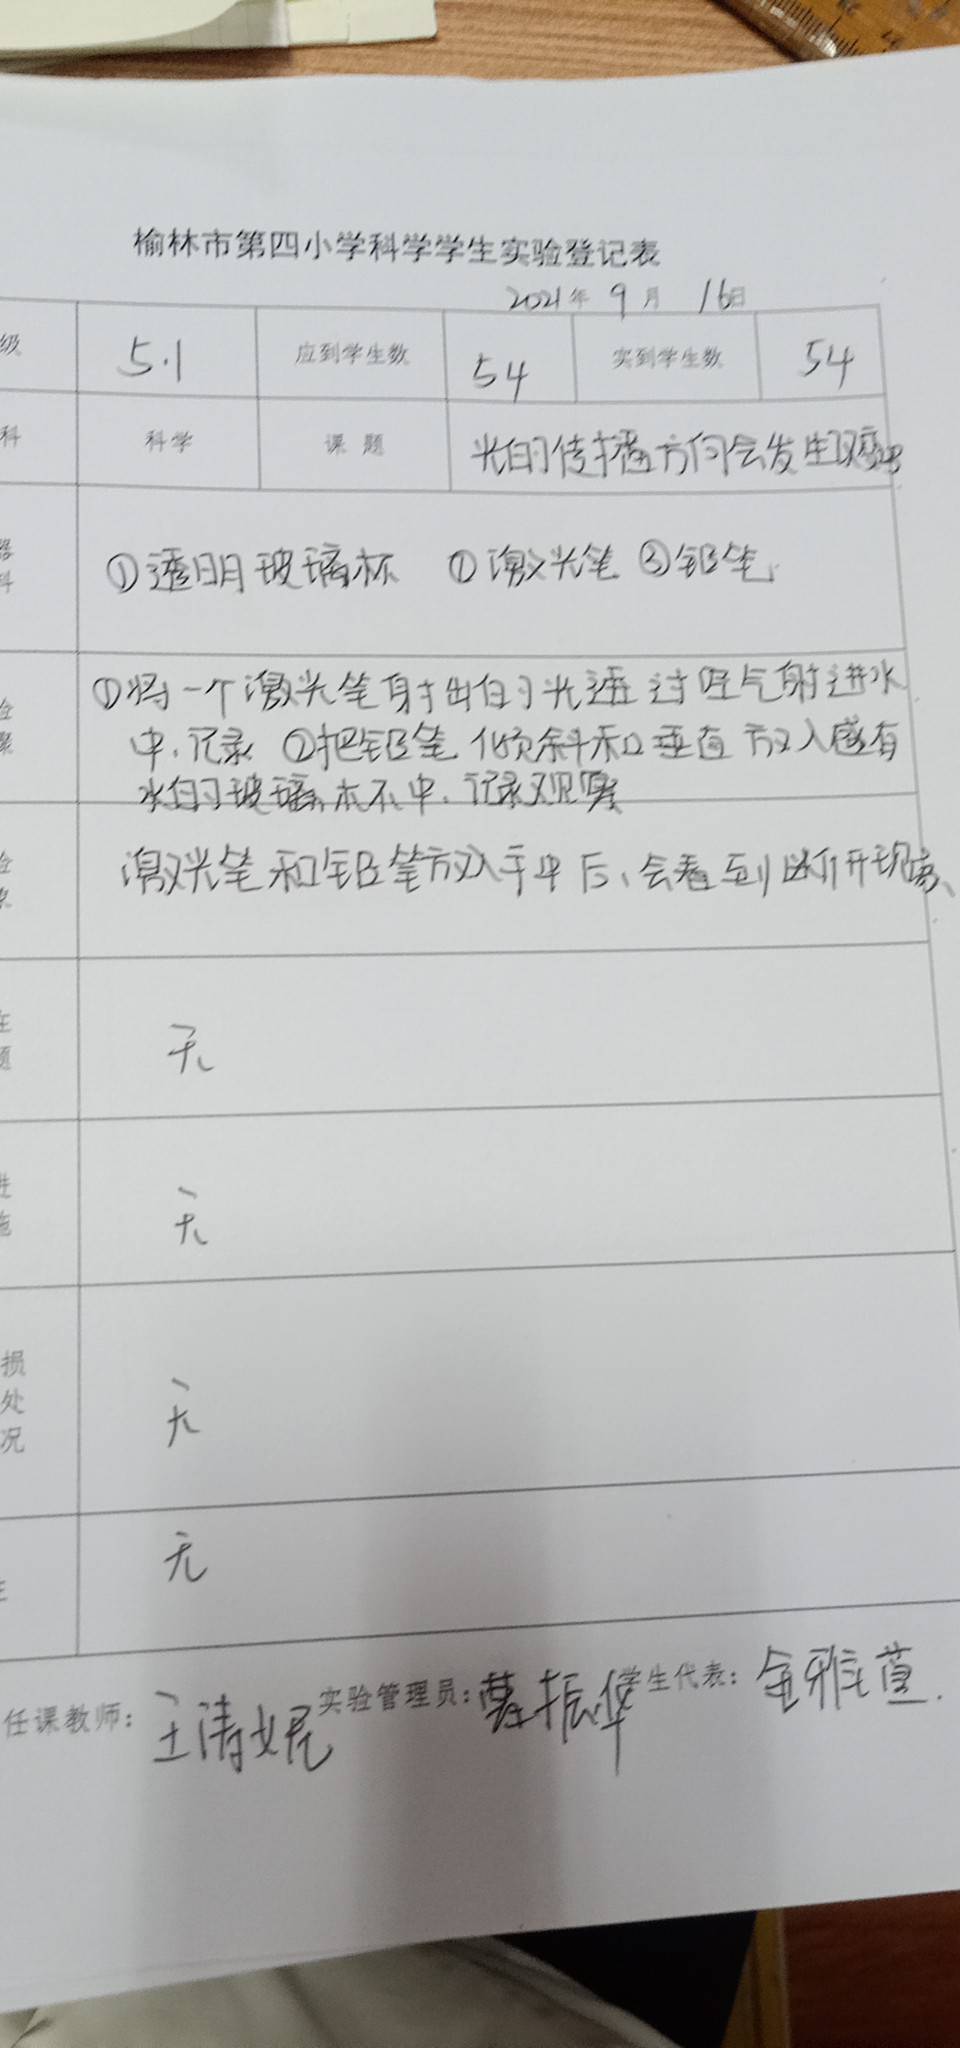 榆林市第四小学科学学生实验登记表
2021年 9月 16日
级 5.1 应到学生数 54 实到学生数 54
科 科学 课题 光的传播方向会发生改变吗
器 ①透明玻璃杯 ②激光笔 ③铅笔
科
①将一个激光笔射出的光透过空气射进水
中,记录 ②把铅笔倾斜和垂直放入盛有
水的玻璃杯中,记录观察
激光笔和铅笔放入于中后、会看到断开现象、
无
进 无
施
损 无
处
况
无
任课教师: 王涛妮 实验管理员: 振华 学生代表: 金雅萱.